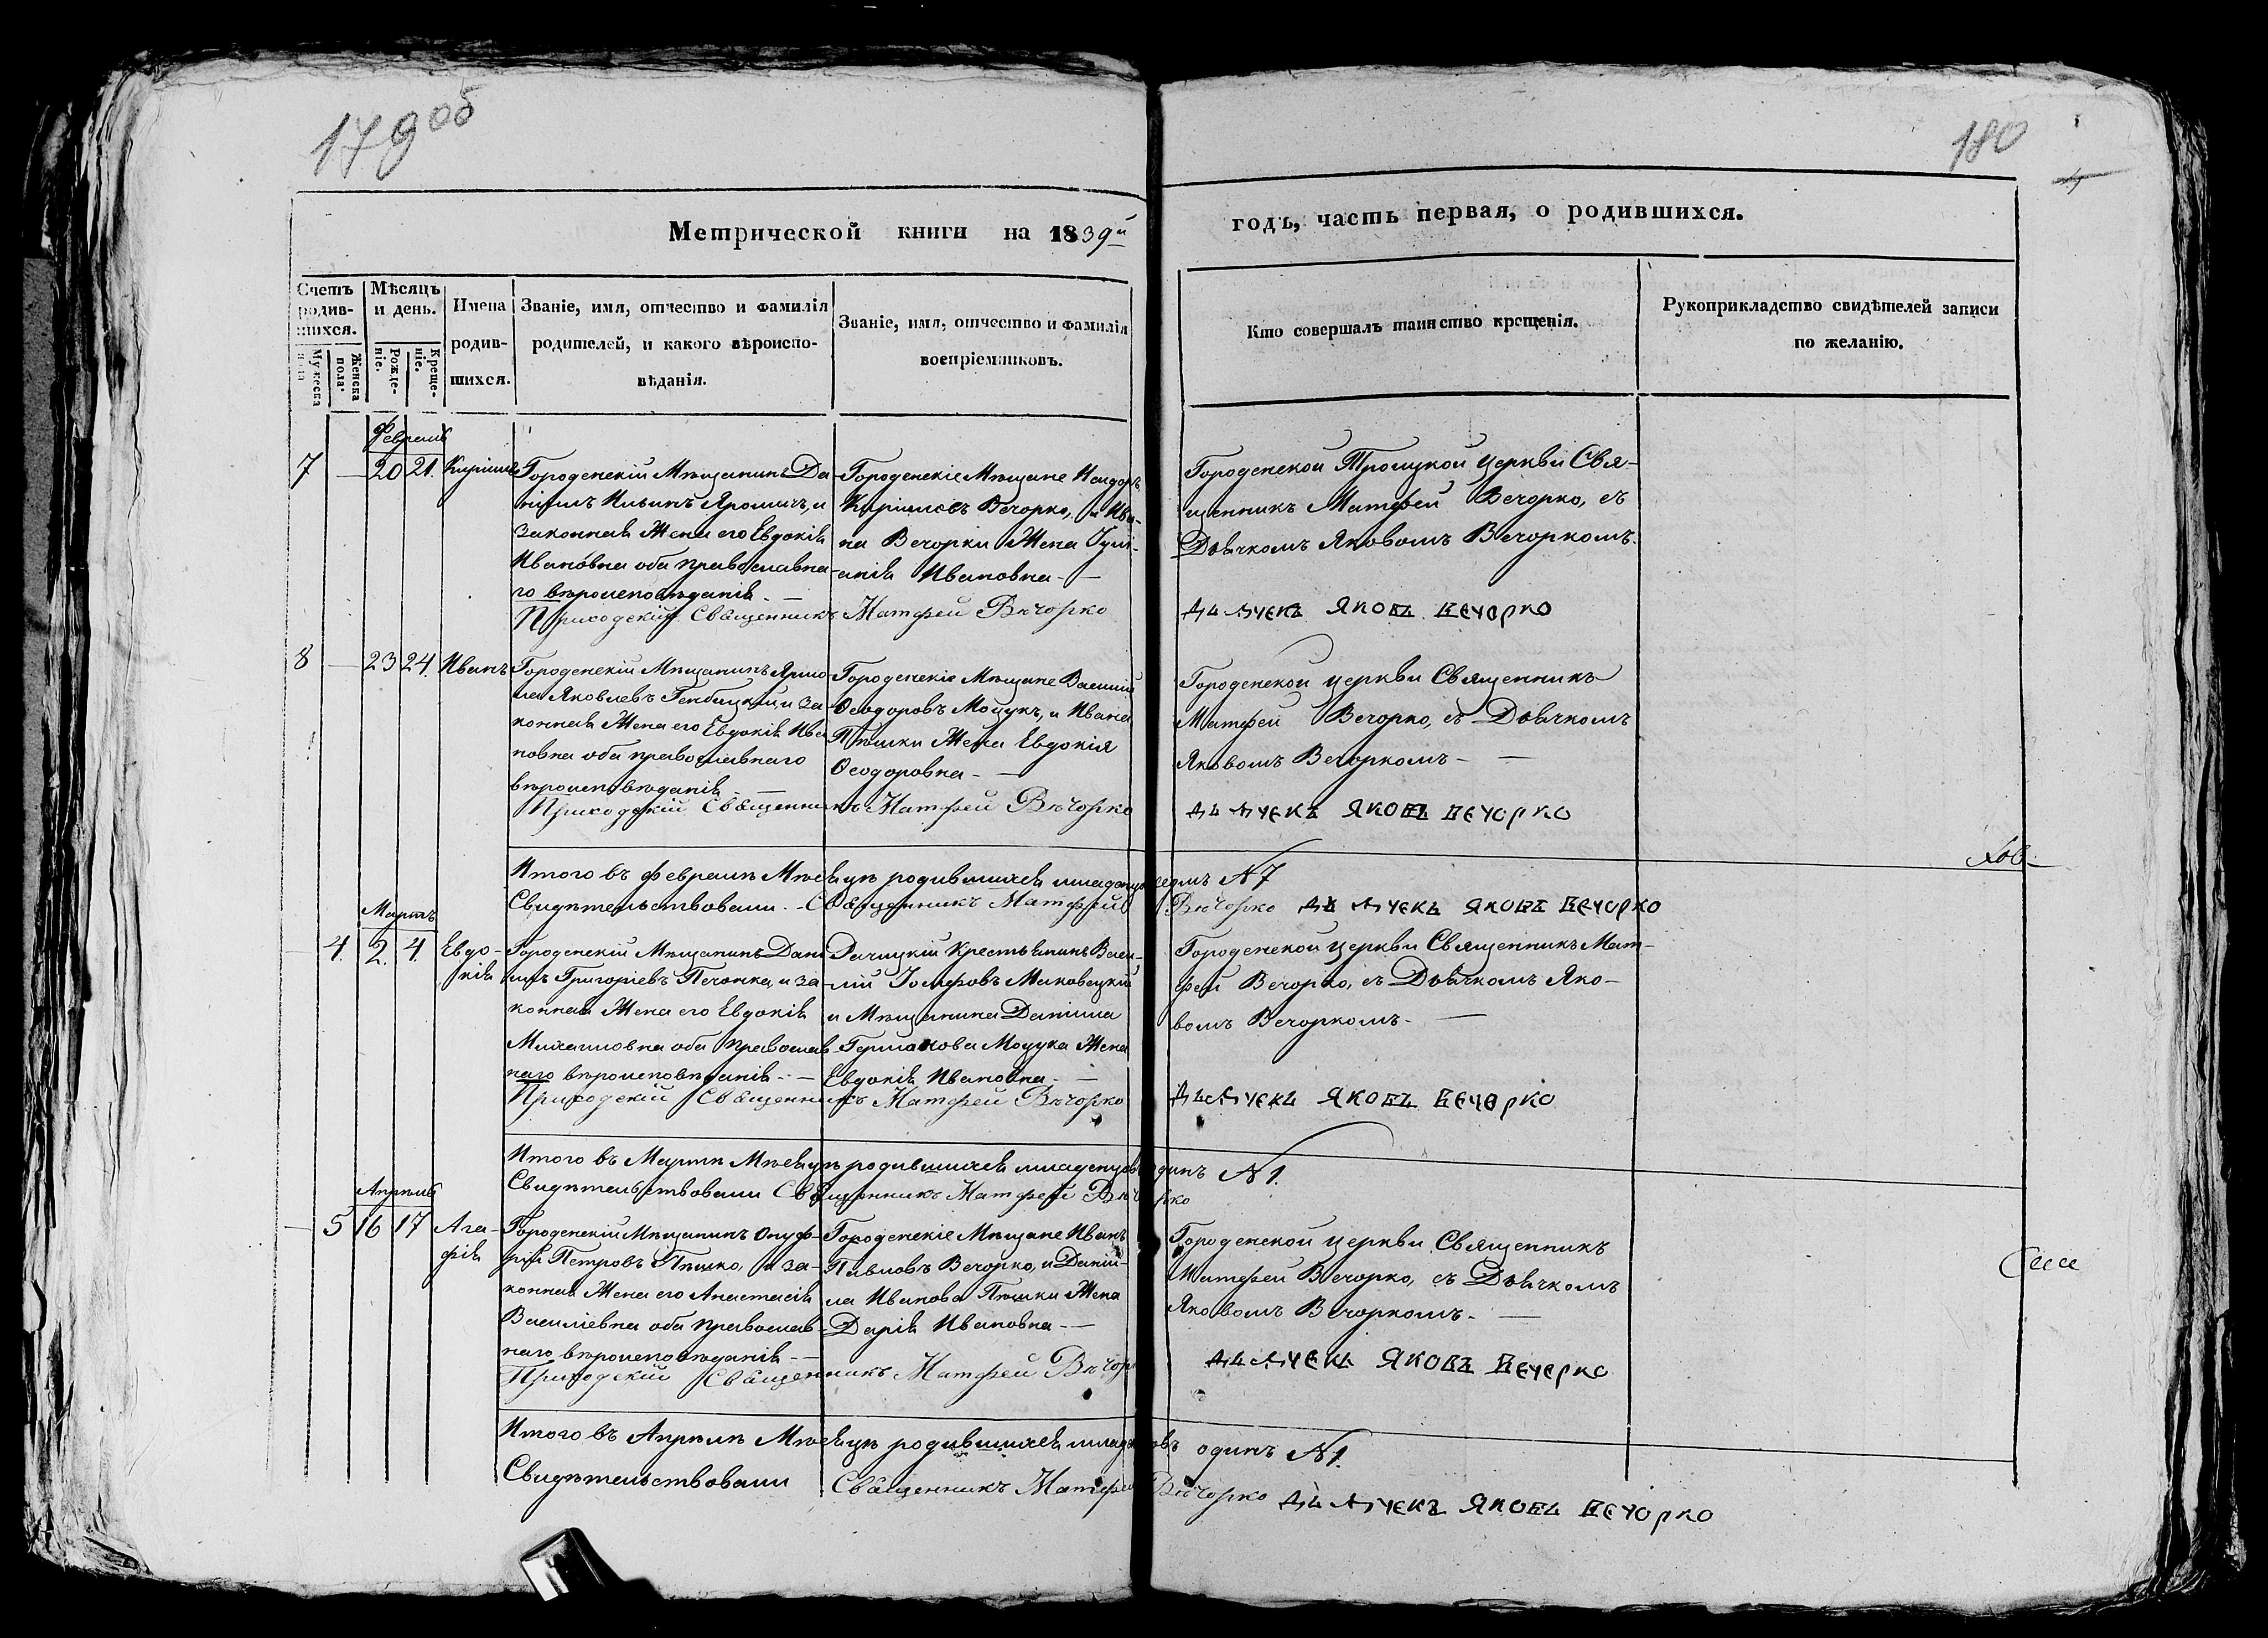 179 об
180
4
Метрической книги на 1839й
годъ, часть первая, о родившихся.
Счетъ родив-
шихся.
Мужеска пола
Женска пола
Мѣсяцъ
и день.
Рожде-
ніе.
Креще-
ніе.
Имена
родив-
шихся.
Званіе, имя, отчество и фамилія
родителей, и какого вѣроиспо-
вѣданія.
Званіе, имя, отчество и фамилія
воспріемниковъ.
Кто совершалъ таинство крещенія.
Рукоприкладство свидѣтелей записи
по желанію.
Февраль
7 — 20 21. Кирилъ
Городенскій Мѣщанинъ Да
ніилъ Ильинъ Яромичъ, и
законная Жена его Евдокія
Ивановна оба православна-
го вѣроисповѣданія. —
Городенскіе Мѣщане Исидоръ
Кириловъ Вечорко, и Ива-
на Вечорки Жена Іулі-
анія Ивановна. —
Приходскій Священникъ Матфей Вѣчорко
Городенской Троицкой церкви Свя-
щенникъ Матфей Вечорко, съ
Дьячкомъ Яковомъ Вечоркомъ.
Дьячекъ Яковъ Вечорко
8 — 23 24. Иванъ
Городенскій Мѣщанинъ
Яковлевъ и за
конная Жена его Евдокія Ива
новна оба православнаго
вѣроисповѣданія. —
Городенскіе Мѣщане Василій
Ѳеодоровъ Моцукъ, и Ивана
Пѣшки Жена Евдокія
Ѳеодоровна. —
Приходскій Священникъ Матфей Вѣчорко
Городенской церкви Священникъ
Матфей Вечорко, съ Дьячкомъ
Яковомъ Вечоркомъ. —
Дьячекъ Яковъ Вечорко
Итого въ февралѣ Мѣсяцѣ родившихся младенцовъ семь №7
Свидѣтельствовали. Священникъ Матфей Вѣчорко Дьячекъ Яковъ Вечорко
Мартъ
— 4. 2. 4. Евдо-
кія
Городенскій Мѣщанинъ Дані
илъ Григоріевъ Печонка, и за-
конная Жена его Евдокія
Михаиловна оба православ-
наго вѣроисповѣданія. —
Крестьянинъ Васи-
лій Іосифовъ Маковецкій
и Мѣщанина Даніила
Моцука Жена
Евдокія Ивановна. —
Приходскій Священникъ Матфей Вѣчорко
Городенской церкви Священникъ Мат-
фей Вечорко, съ Дьячкомъ Яко-
вомъ Вечоркомъ. —
Дьячекъ Яковъ Вечорко
Итого въ Мартѣ Мѣсяцѣ родившихся младенцовъ одинъ №1.
Свидѣтельствовали Священникъ Матфей Вѣчорко
Апрѣль
— 5 16 17 Ага-
фія
Городенскій Мѣщанинъ Онуф-
рій Петровъ Пѣшко, и за-
конная Жена его Анастасія
Василіевна оба православ-
наго вѣроисповѣданія. —
Городенскіе Мѣщане Иванъ
Павловъ Вечорко, и Даніи-
ла Иванова Пѣшки Жена
Дарія Ивановна. —
Приходскій Священникъ Матфей Вѣчор
Городенской церкви Священникъ
Матфей Вечорко, съ Дьячкомъ
Яковомъ Вечоркомъ. —
Дьячекъ Яковъ Вечерко
Итого въ Апрѣлѣ Мѣсяцѣ родившихся младенцовъ одинъ №1.
Свидѣтельствовали Священникъ Матфей Вѣчорко Дьячекъ Яковъ Вечорко